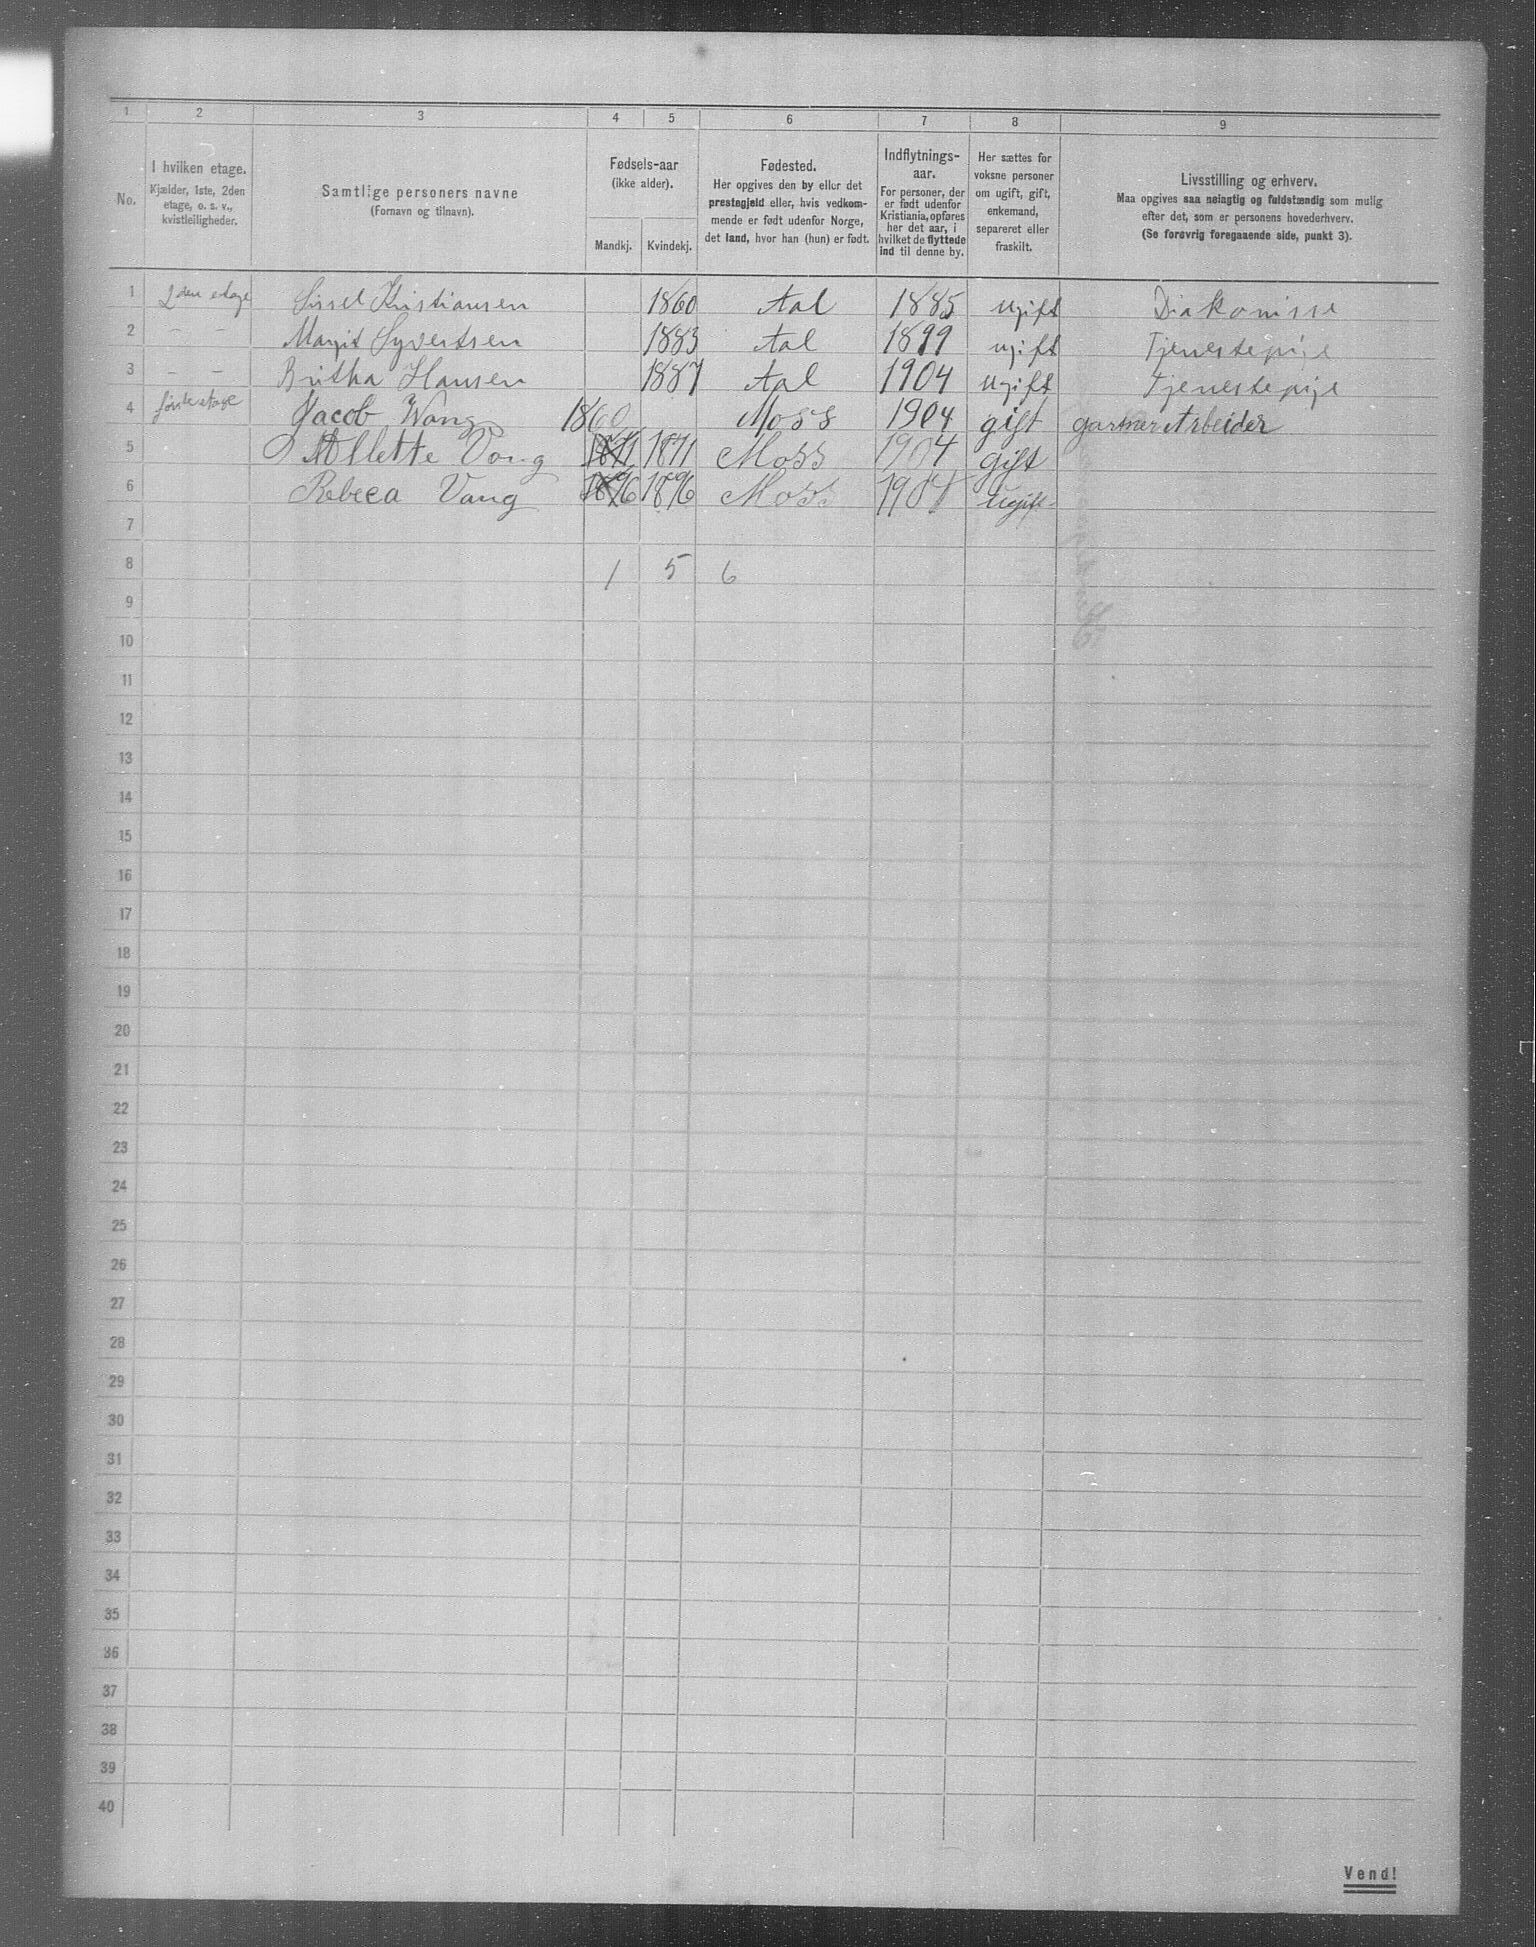 1 2 3 4 5 6 7 8 9
No.
I hvilken etage.
Kjælder, 1ste, 2den
etage, o. s. v.,
kvistleiligheder.
Samtlige personers navne
(Fornavn og tilnavn).
Fødsels-aar
(ikke alder).
Mandkj. Kvindekj.
Fødested.
Her opgives den by eller det
prestegjeld eller, hvis vedkom-
mende er født udenfor Norge,
det land, hvor han (hun) er født.
Indflytnings-
aar.
For personer, der
er født udenfor
Kristiania, opføres
her det aar, i
hvilket de flyttede
ind til denne by.
Her sættes for
voksne personer
om ugift, gift,
enkemand,
separeret eller
fraskilt.
Livsstilling og erhverv.
Maa opgives saa nøiagtig og fuldstændig som mulig
efter det, som er personens hovederhverv.
(Se forøvrig foregaaende side, punkt 3).
1 2den etage Sissel Kristiansen 1860 Aal 1885 ugift Diakonisse
2 – – Margit Syvertsen 1883 Aal 1899 ugift Tjenestepige
3 – – Britha Hansen 1887 Aal 1904 ugift Tjenestepige
4 første etage Jacob Wang 1860 Moss 1904 gift gartnerArbeider
5 Allette Vang 1871 1871 Moss 1904 gift
6 Rebeca Vang 1896 1896 Moss 1904 ugift
7
8 1 5 6
9
10
11
12
13
14
15
16
17
18
19
20
21
22
23
24
25
26
27
28
29
30
31
32
33
34
35
36
37
38
39
40
Vend!